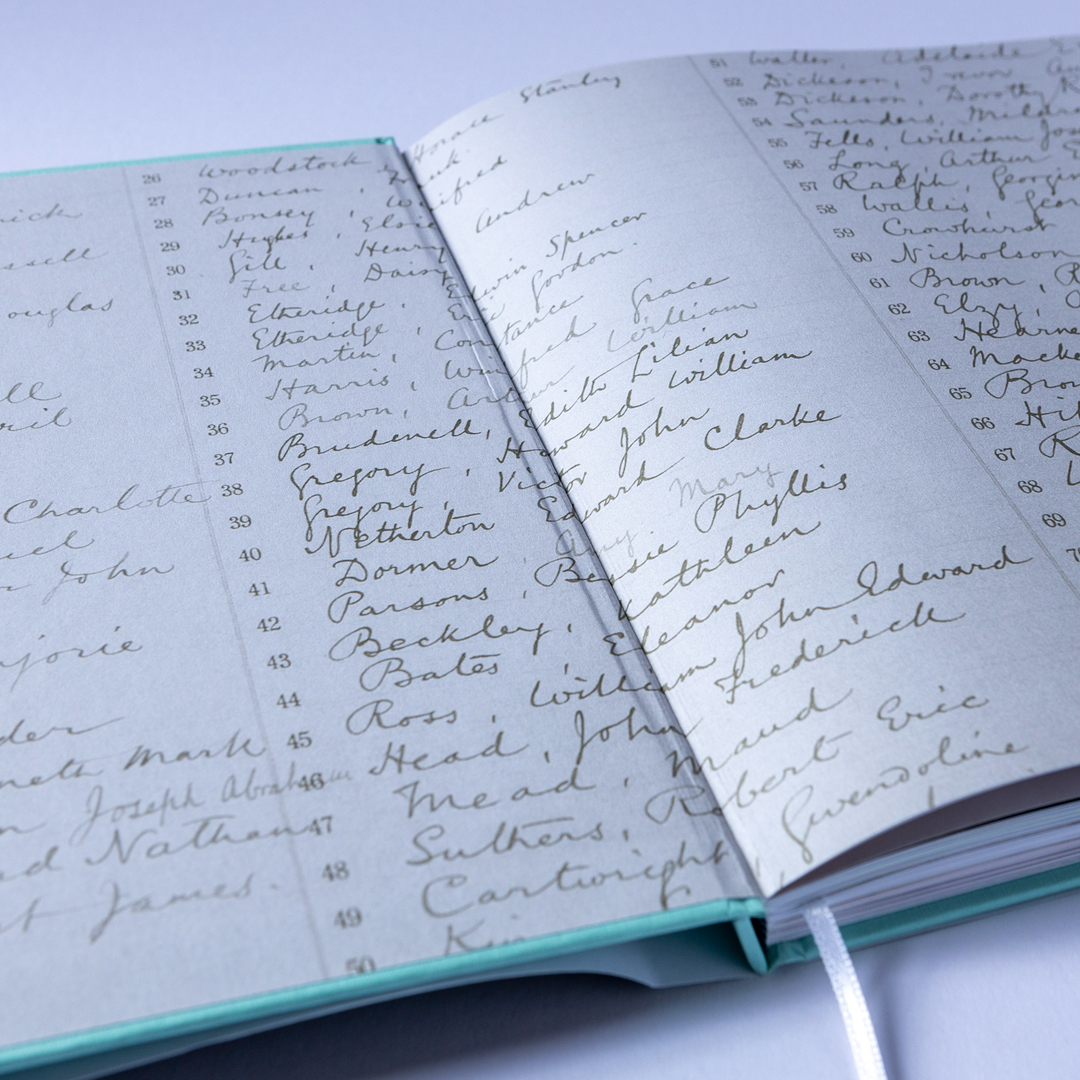 ssell
ouglas
Charlotte
John
jorie
der
neth Mark
Joseph Abraham
d Nathan
James.
26 Woodstock
27 Duncan,
28 Bonsey, Winifred
29 Hughes,
30 Gill, Henry Andrew
31 Free, Daisy
32 Etheridge, Edwin Spencer
33 Etheridge, Eric Gordon.
34 Martin, Constance
35 Harris, Winifred Grace
36 Brown, Arthur William
37 Brudenell, Edith Lilian
38 Gregory, Howard William
39 Gregory, Victor John
40 Netherton Edward Clarke
41 Dormer, Amy Mary
42 Parsons, Bessie Phyllis
43 Beckley, Kathleen
44 Bates, Eleanor
45 Ross, William John Edward
46 Head, John Frederick
47 Mead, Maud
48 Suthers, Robert Eric
49 Cartwright, Gwendoline
50
Stanley
Horace
51 Waller, Adelaide
52 Dickeson, Trevor
53 Dickeson, Dorothy
54 Saunders, Mildred
55 Fells, William Jos
56 Long Arthur
57 Ralph, Georgin
58 Wallis, Geor
59 Crowhurst
60 Nicholson
61 Brown,
62 Elzy,
63 Hearne
64 Macke
65 Brow
66
67
68
69